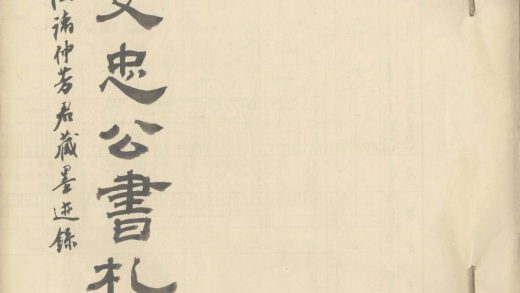 文忠公書札
諸仲芳君藏墨迹錄